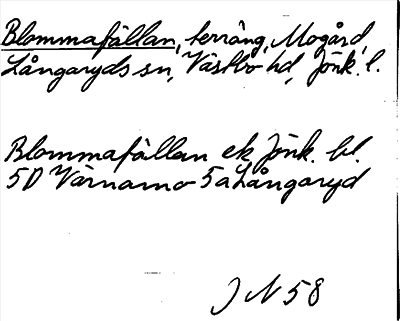 Blommafällan, terräng, Mogård,
Långaryds sn, Västbo hd, Jönk. l.
Blommafällan ek Jönk. bl.
5D Värnamo 5a Långaryd
J N 58